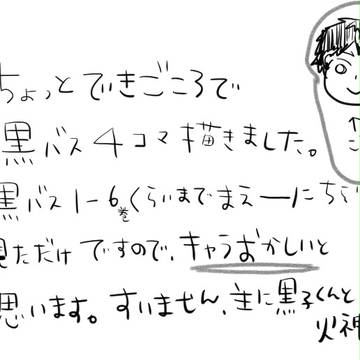 ちょっとできごころで
黒バス4コマ描きました。
黒バス1-6巻くらいまでまえーにちらっ
見ただけですので、キャラおかしいと
思います。すいません、主に黒子くんと
火神